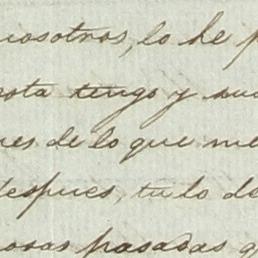 nosotros, lo he
tengo y
de lo que me
despues, tu lo de
pasadas